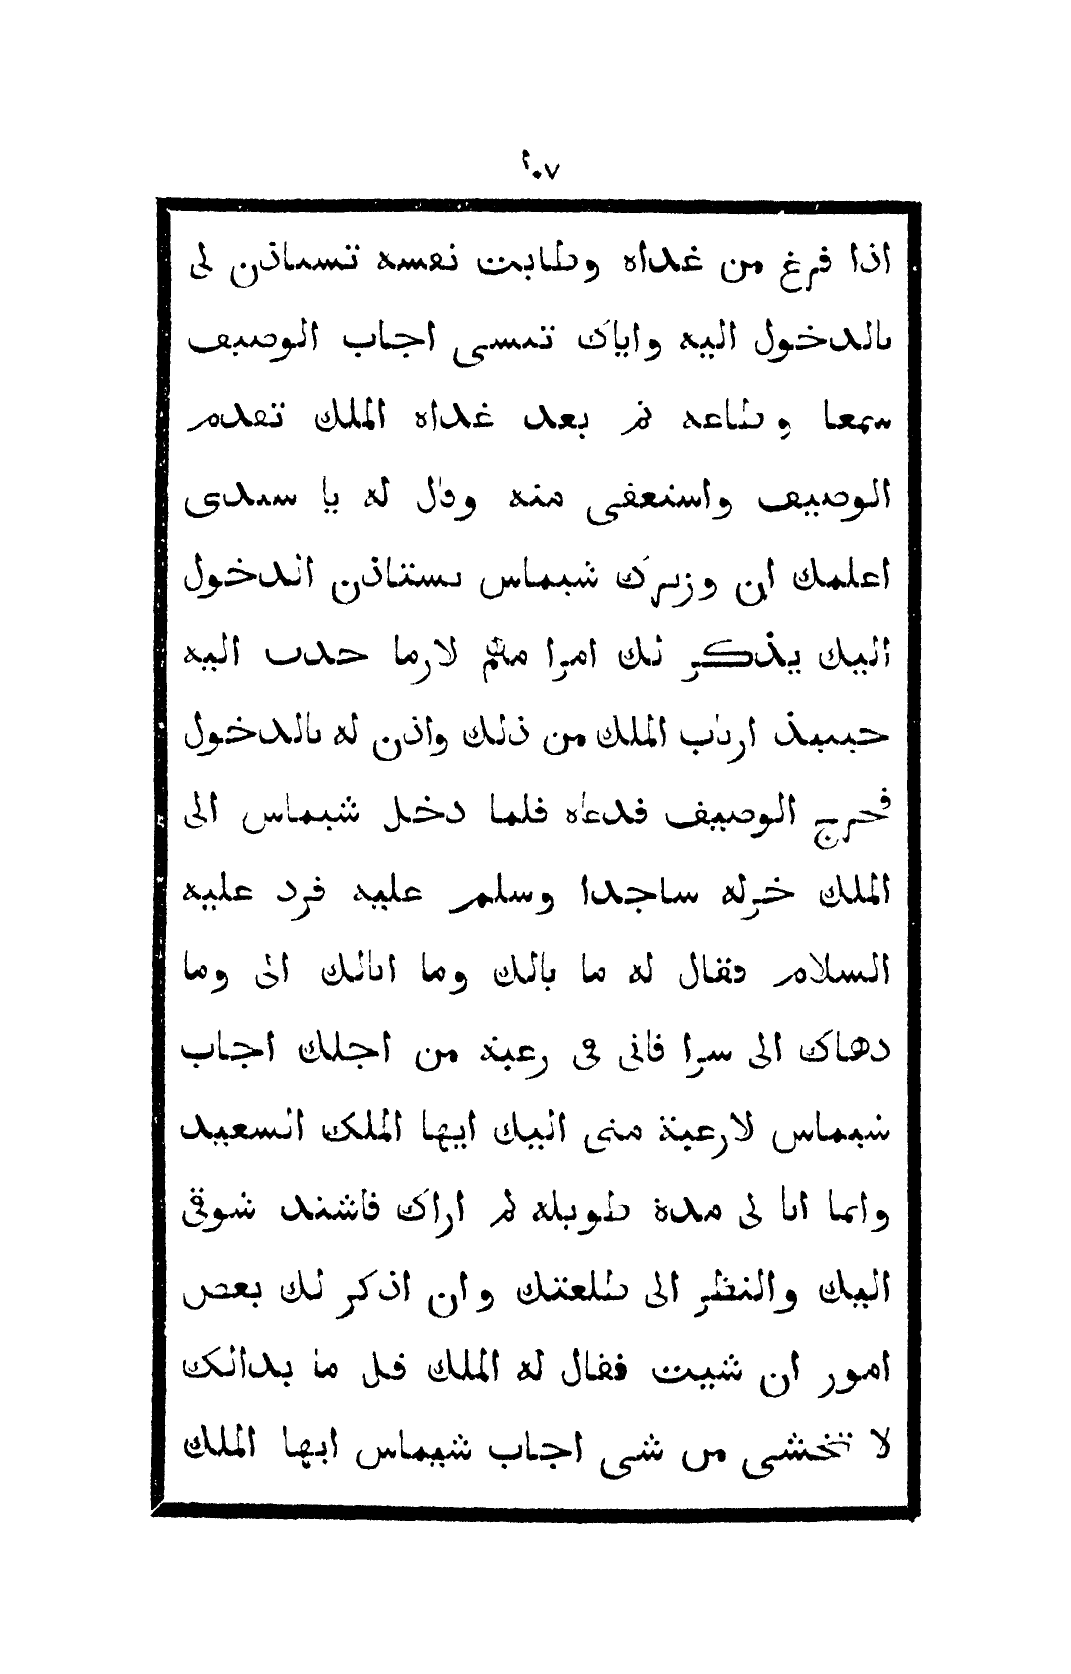 ٢٠٧
اذا فرغ من غداه وطابت نفسه تستاذن لى
بالدخول اليه واياك تنسى اجاب الوصيف
سمعا وطاعه ثم بعد غداه الملك تقدم
الوصيف واستعفى منه وقال له يا سيدى
اعلمك ان وزيرك شيماس يستاذن الدخول
اليك يذكر لك امرا مهم لازما حدث اليه
حينيذ ارتاب الملك من ذلك واذن له بالدخول
فخرج الوصيف فدعاه فلما دخل شيماس الى
الملك خر له ساجدا وسلم عليه فرد عليه
السلام فقال له ما بالك وما اتابك الى وما
دهاك الى سرا فانى فى رعبة من اجلك اجاب
شيماس لا رعبة منى اليك ايها الملك السعيد
وانما انا لى مدة طويله لم اراك فاشتد شوقى
اليك والنظر الى طلعتك وان اذكر لك بعض
امور ان شيت فقال له الملك قل ما بدالك
لا تخشى من شى اجاب شيماس ايها الملك